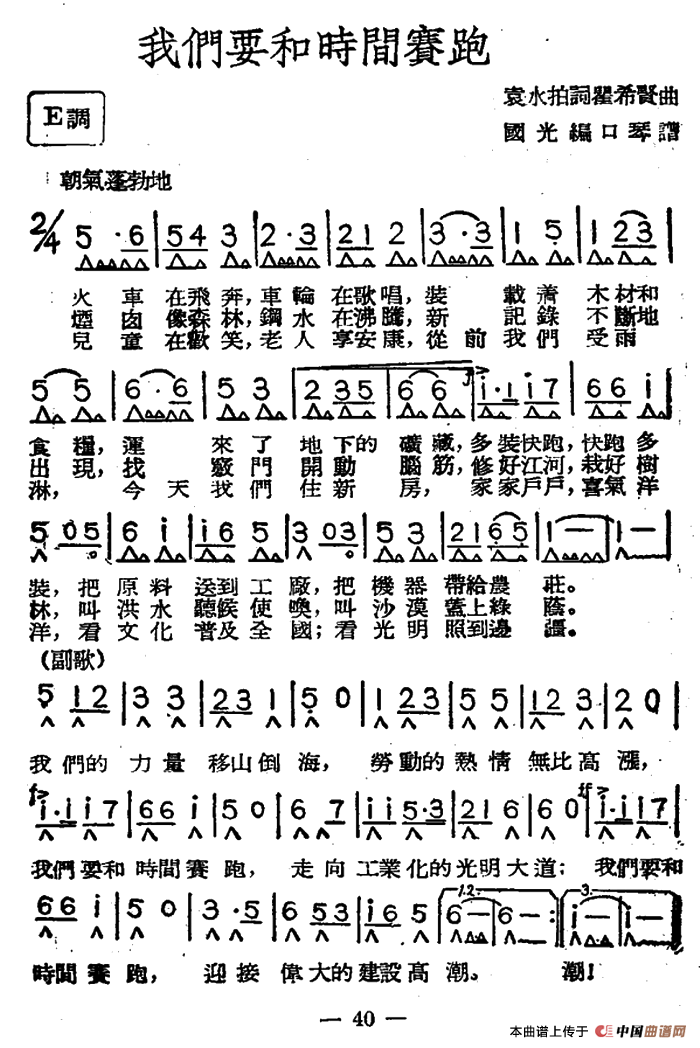 我們要和時間賽跑
袁水拍詞瞿希賢曲
E調
國光編口琴譜
朝氣蓬勃地
2/4 5 · 6 | 5 4 3 | 2 · 3 | 2 1 2 | 3 · 3 | 1 5 | 1 2 3 |
火車在飛奔,車輪在歌唱,裝載着木材和
煙囱像森林,鋼水在沸騰,新記錄不斷地
兒童在歡笑,老人享安康,從前我們受雨
5 5 | 6 · 6 | 5 3 | 2 3 5 | 6 6 | i · i i 7 | 6 6 i |
食糧,運來了地下的礦藏,多裝快跑,快跑多
出現,找竅門開動腦筋,修好江河,栽好樹
淋,今天我們住新房,家家戶戶,喜氣洋
5 0 5 | 6 i | i 6 5 | 3 0 3 | 5 3 | 2 1 6 5 | 1 — | 1 — |
裝,把原料送到工廠,把機器帶給農莊。
林,叫洪水聽候使喚,叫沙漠蓋上綠蔭。
洋,看文化普及全國;看光明照到邊疆。
(副歌)
5 1 2 | 3 3 | 2 3 1 | 5 0 | 1 2 3 | 5 5 | 1 2 3 | 2 0 |
我們的力量移山倒海,勞動的熱情無比高漲,
f> i · i i 7 | 6 6 i | 5 0 | 6 7 | i i 5 · 3 | 2 1 6 | 6 0 | ff i · i i 7 |
我們要和時間賽跑,走向工業化的光明大道;我們要和
6 6 i | 5 0 | 3 · 5 | 6 5 3 | i 6 5 | 1.2. 6 — | 6 — :| 3. i — | i — ‖
時間賽跑,迎接偉大的建設高潮。潮!
— 40 —
本曲譜上传于 中国曲谱网